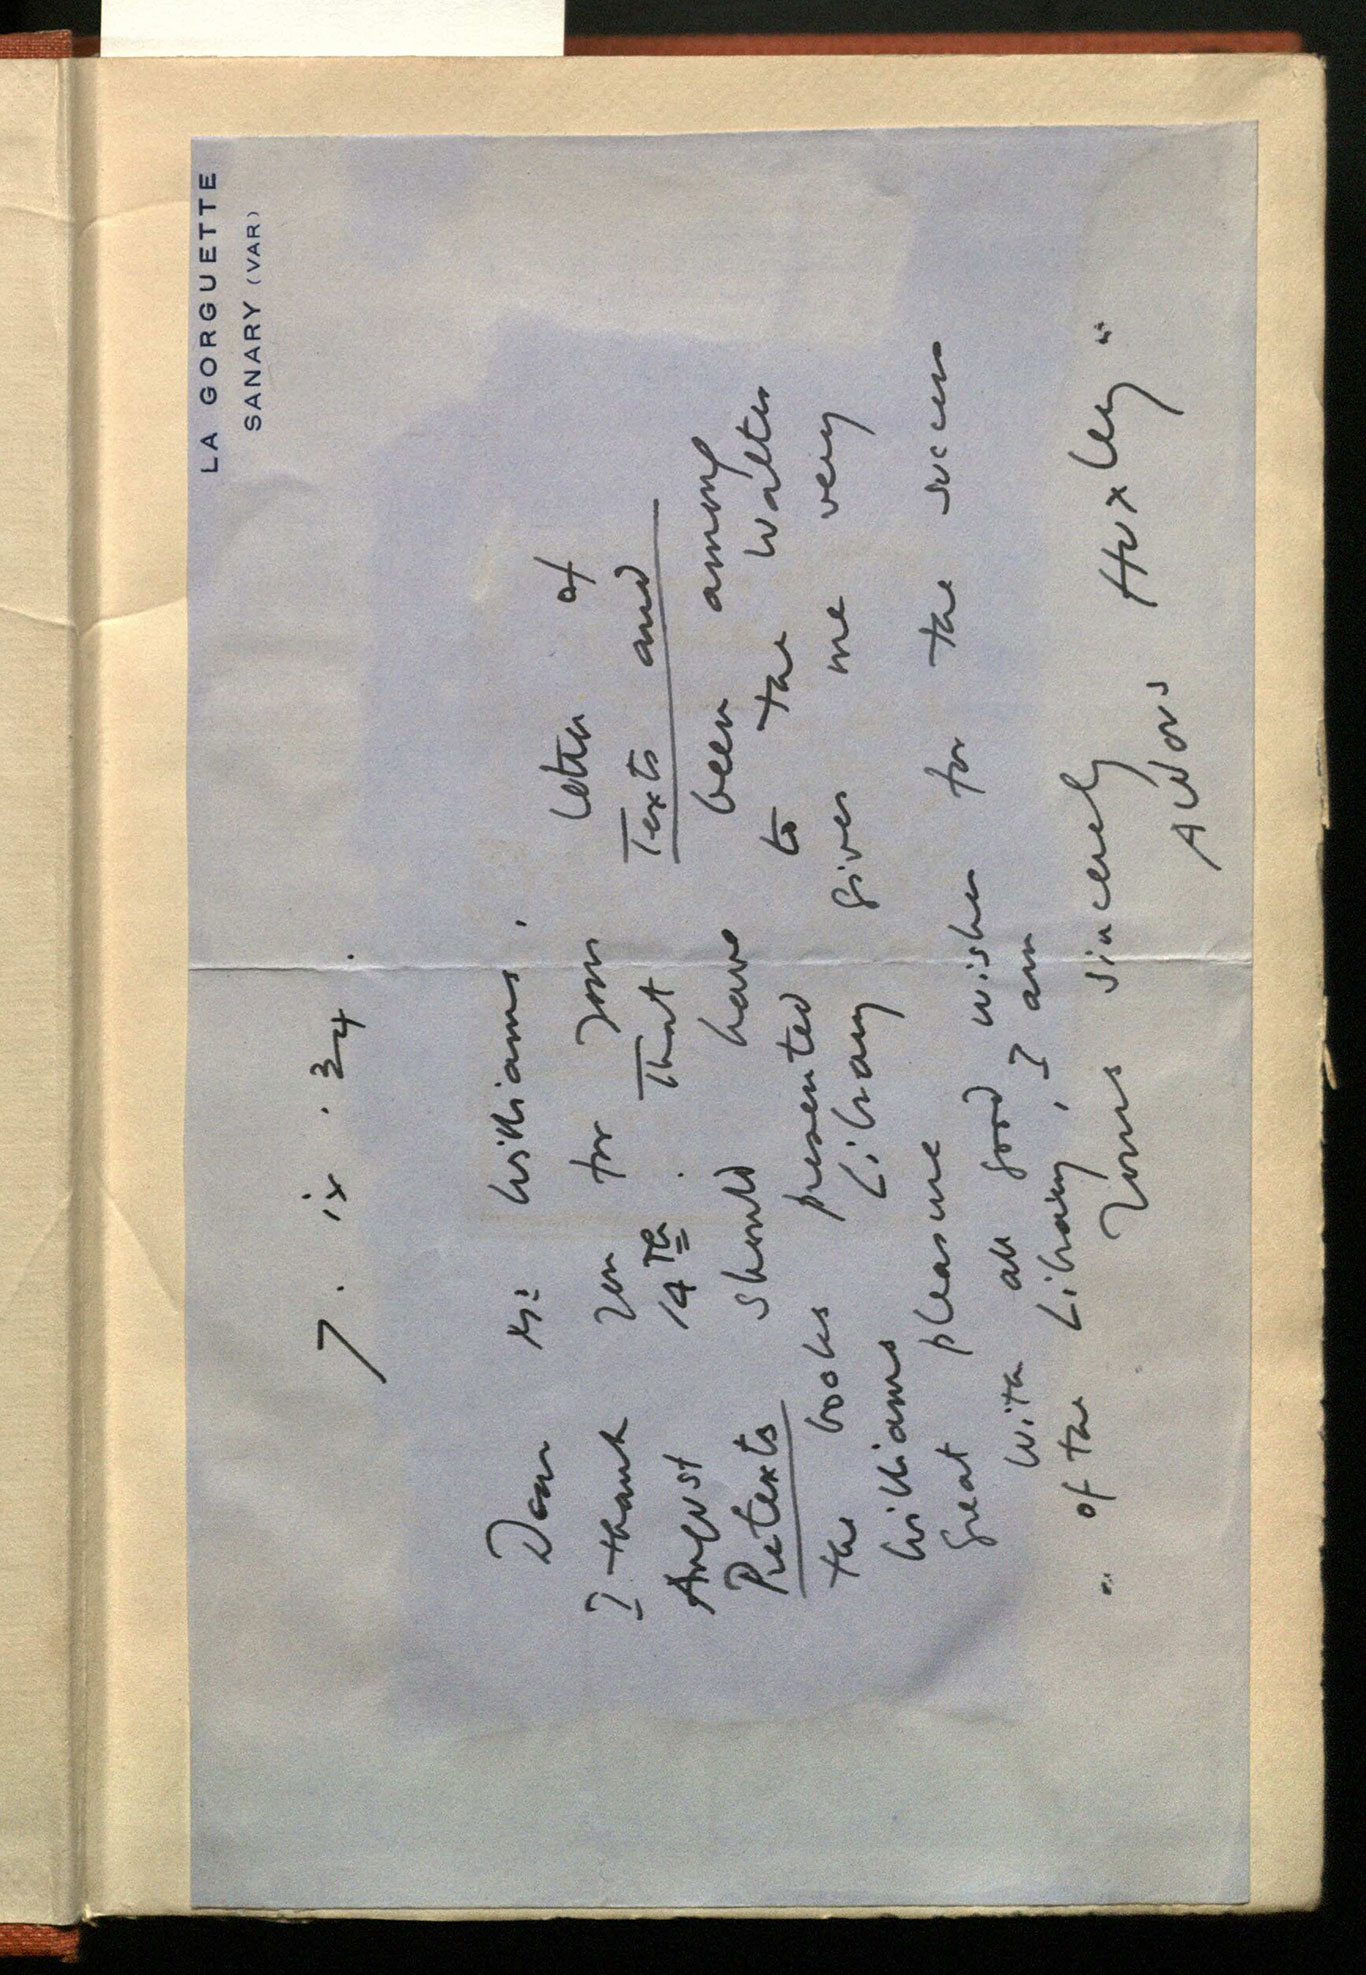 LA GORGUETTE
SANARY (VAR)
7. ix. 34.
Dear Mr Williams,
I thank you for your letter of
August 14th. That Texts and
Pretexts should have been among
the books presented to the Walter
Williams Library gives me very
great pleasure
With all good wishes for the success
of the Library, I am
Yours sincerely
Aldous Huxley